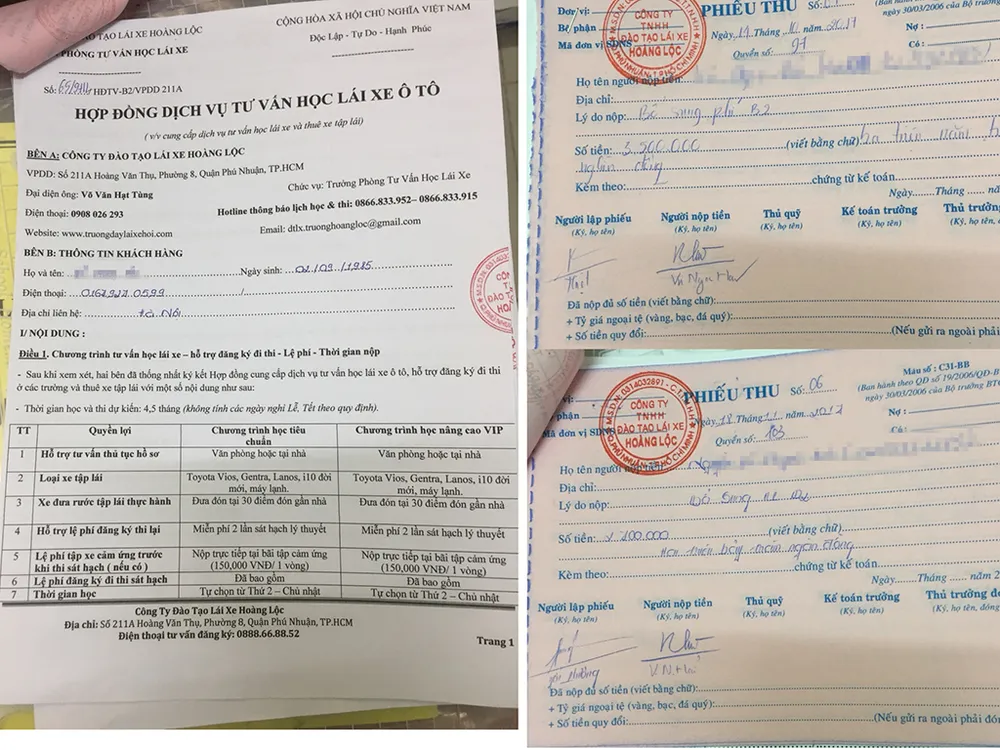 ĐÀO TẠO LÁI XE HOÀNG LỘC
PHÒNG TƯ VẤN HỌC LÁI XE
CỘNG HÒA XÃ HỘI CHỦ NGHĨA VIỆT NAM
Độc Lập - Tự Do - Hạnh Phúc
Số: HĐTV-B2/VPDD 211A
HỢP ĐỒNG DỊCH VỤ TƯ VẤN HỌC LÁI XE Ô TÔ
( v/v cung cấp dịch vụ tư vấn học lái xe và thuê xe tập lái)
BÊN A: CÔNG TY ĐÀO TẠO LÁI XE HOÀNG LỘC
VPDD: Số 211A Hoàng Văn Thụ, Phường 8, Quận Phú Nhuận, TP.HCM
Đại diện ông: Võ Văn Hạt Tùng
Chức vụ: Trưởng Phòng Tư Vấn Học Lái Xe
Điện thoại: 0908 026 293
Hotline thông báo lịch học & thi: 0866.833.952– 0866.833.915
Website: www.truongdaylaixehoi.com
Email: dtlx.truonghoangloc@gmail.com
BÊN B: THÔNG TIN KHÁCH HÀNG
Họ và tên: Ngày sinh: 02/09/1985
Điện thoại:
Địa chỉ liên hệ: Hà Nội
I/ NỘI DUNG :
Điều 1. Chương trình tư vấn học lái xe – hỗ trợ đăng ký đi thi - Lệ phí - Thời gian nộp
- Sau khi xem xét, hai bên đã thống nhất ký kết Hợp đồng cung cấp dịch vụ tư vấn học lái xe ô tô, hỗ trợ đăng ký đi thi
ở các trường và thuê xe tập lái với một số nội dung như sau:
- Thời gian học và thi dự kiến: 4,5 tháng (không tính các ngày nghỉ Lễ, Tết theo quy định).
TT Quyền lợi Chương trình học tiêu chuẩn Chương trình học nâng cao VIP
1 Hỗ trợ tư vấn thủ tục hồ sơ Văn phòng hoặc tại nhà Văn phòng hoặc tại nhà
2 Loại xe tập lái Toyota Vios, Gentra, Lanos, i10 đời mới, máy lạnh. Toyota Vios, Gentra, Lanos, i10 đời mới, máy lạnh.
3 Xe đưa rước tập lái thực hành Đưa đón tại 30 điểm đón gần nhà Đưa đón tại 30 điểm đón gần nhà
4 Hỗ trợ lệ phí đăng ký thi lại Miễn phí 2 lần sát hạch lý thuyết Miễn phí 2 lần sát hạch lý thuyết
5 Lệ phí tập xe cảm ứng trước khi thi sát hạch ( nếu có ) Nộp trực tiếp tại bãi tập cảm ứng (150,000 VNĐ/ 1 vòng) Nộp trực tiếp tại bãi tập cảm ứng (150,000 VNĐ/ 1 vòng)
6 Lệ phí đăng ký đi thi sát hạch Đã bao gồm Đã bao gồm
7 Thời gian học Tự chọn từ Thứ 2 – Chủ nhật Tự chọn từ Thứ 2 – Chủ nhật
Công Ty Đào Tạo Lái Xe Hoàng Lộc
Địa chỉ: Số 211A Hoàng Văn Thụ, Phường 8, Quận Phú Nhuận, TP.HCM
Điện thoại tư vấn đăng ký: 0888.66.88.52
Trang 1
Đơn vị:
Bộ phận
Mã đơn vị SDNS
CÔNG TY
TNHH
ĐÀO TẠO LÁI XE
HOÀNG LỘC
PHIẾU THU
Số:
30/03/2006 của Bộ trưởng
Ngày 19 Tháng năm 2017
Quyển số: 97
Nợ :
Có :
Họ tên người nộp tiền:
Địa chỉ:
Lý do nộp: Bổ sung phí B2
Số tiền: 3.500.000 (viết bằng chữ) ba triệu năm
nghìn đồng
Kèm theo: chứng từ kế toán
Ngày Tháng
Người lập phiếu Người nộp tiền Thủ quỹ Kế toán trưởng Thủ trưởng
(Ký, họ tên) (Ký, họ tên) (Ký, họ tên) (Ký, họ tên) (Ký, họ tên,
Đã nộp đủ số tiền (viết bằng chữ):
+ Tỷ giá ngoại tệ (vàng, bạc, đá quý):
+ Số tiền quy đổi: (Nếu gửi ra ngoài phải
Mẫu số : C31-BB
(Ban hành theo QĐ số 19/2006/QĐ-B
30/03/2006 của Bộ trưởng BT
vị:
phận
Mã đơn vị SDNS
M.S.D.N: 0314032891 - C.T.T.N.H.H
CÔNG TY
TNHH
ĐÀO TẠO LÁI XE
HOÀNG LỘC
Q.PHÚ NHUẬN - T.P HỒ CHÍ MINH
PHIẾU THU
Số: 06
Ngày 18 Tháng 11 năm 2017
Quyển số: 103
Nợ :
Có :
Họ tên người nộp tiền:
Địa chỉ:
Lý do nộp:
Số tiền: (viết bằng chữ)
triệu bảy trăm ngàn đồng
Kèm theo: chứng từ kế toán
Ngày Tháng năm 2
Người lập phiếu Người nộp tiền Thủ quỹ Kế toán trưởng Thủ trưởng
(Ký, họ tên) (Ký, họ tên) (Ký, họ tên) (Ký, họ tên) (Ký, họ tên, đóng
Đã nộp đủ số tiền (viết bằng chữ):
+ Tỷ giá ngoại tệ (vàng, bạc, đá quý):
+ Số tiền quy đổi: (Nếu gửi ra ngoài phải đón